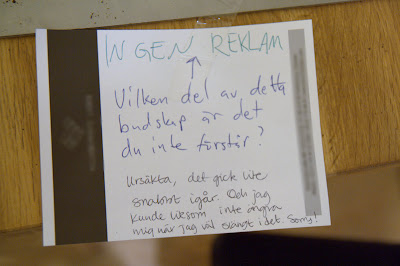 INGEN REKLAM
Vilken del av detta
budskap är det
du inte förstår?
Ursäkta, det gick lite
snabbt igår. Och jag
kunde liksom inte ångra
mig när jag väl slängt i det. Sorry!